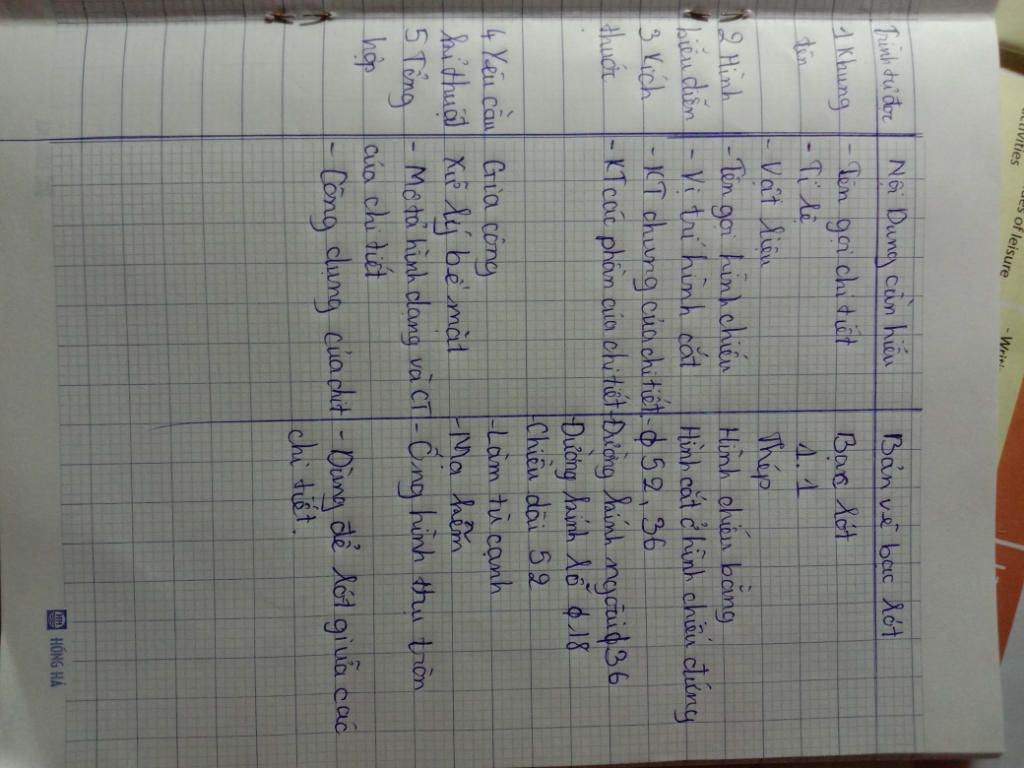 Trình tự đọc Nội Dung cần hiểu Bản vẽ bạc lót
1 Khung - Tên gọi chi tiết Bạc lót
tên - Tỉ lệ 1.1
- Vật liệu Thép
2 Hình - Tên gọi hình chiếu Hình chiếu bằng
biểu diễn - Vị trí hình cắt Hình cắt ở hình chiếu đứng
3 Kích - KT chung của chi tiết - ϕ 52, 36
thước - KT các phần của chi tiết - Đường kính ngoài ϕ36
- Đường kính lỗ ϕ 18
- Chiều dài 52
4 Yêu cầu Gia công - Làm tù cạnh
kĩ thuật Xử lý bề mặt - Mạ kẽm
5 Tổng - Mô tả hình dạng và CT - Ống hình trụ tròn
hợp của chi tiết
- Công dụng của chit - Dùng để lót giữa các
chi tiết.
HỒNG HÀ
activities
des of leisure